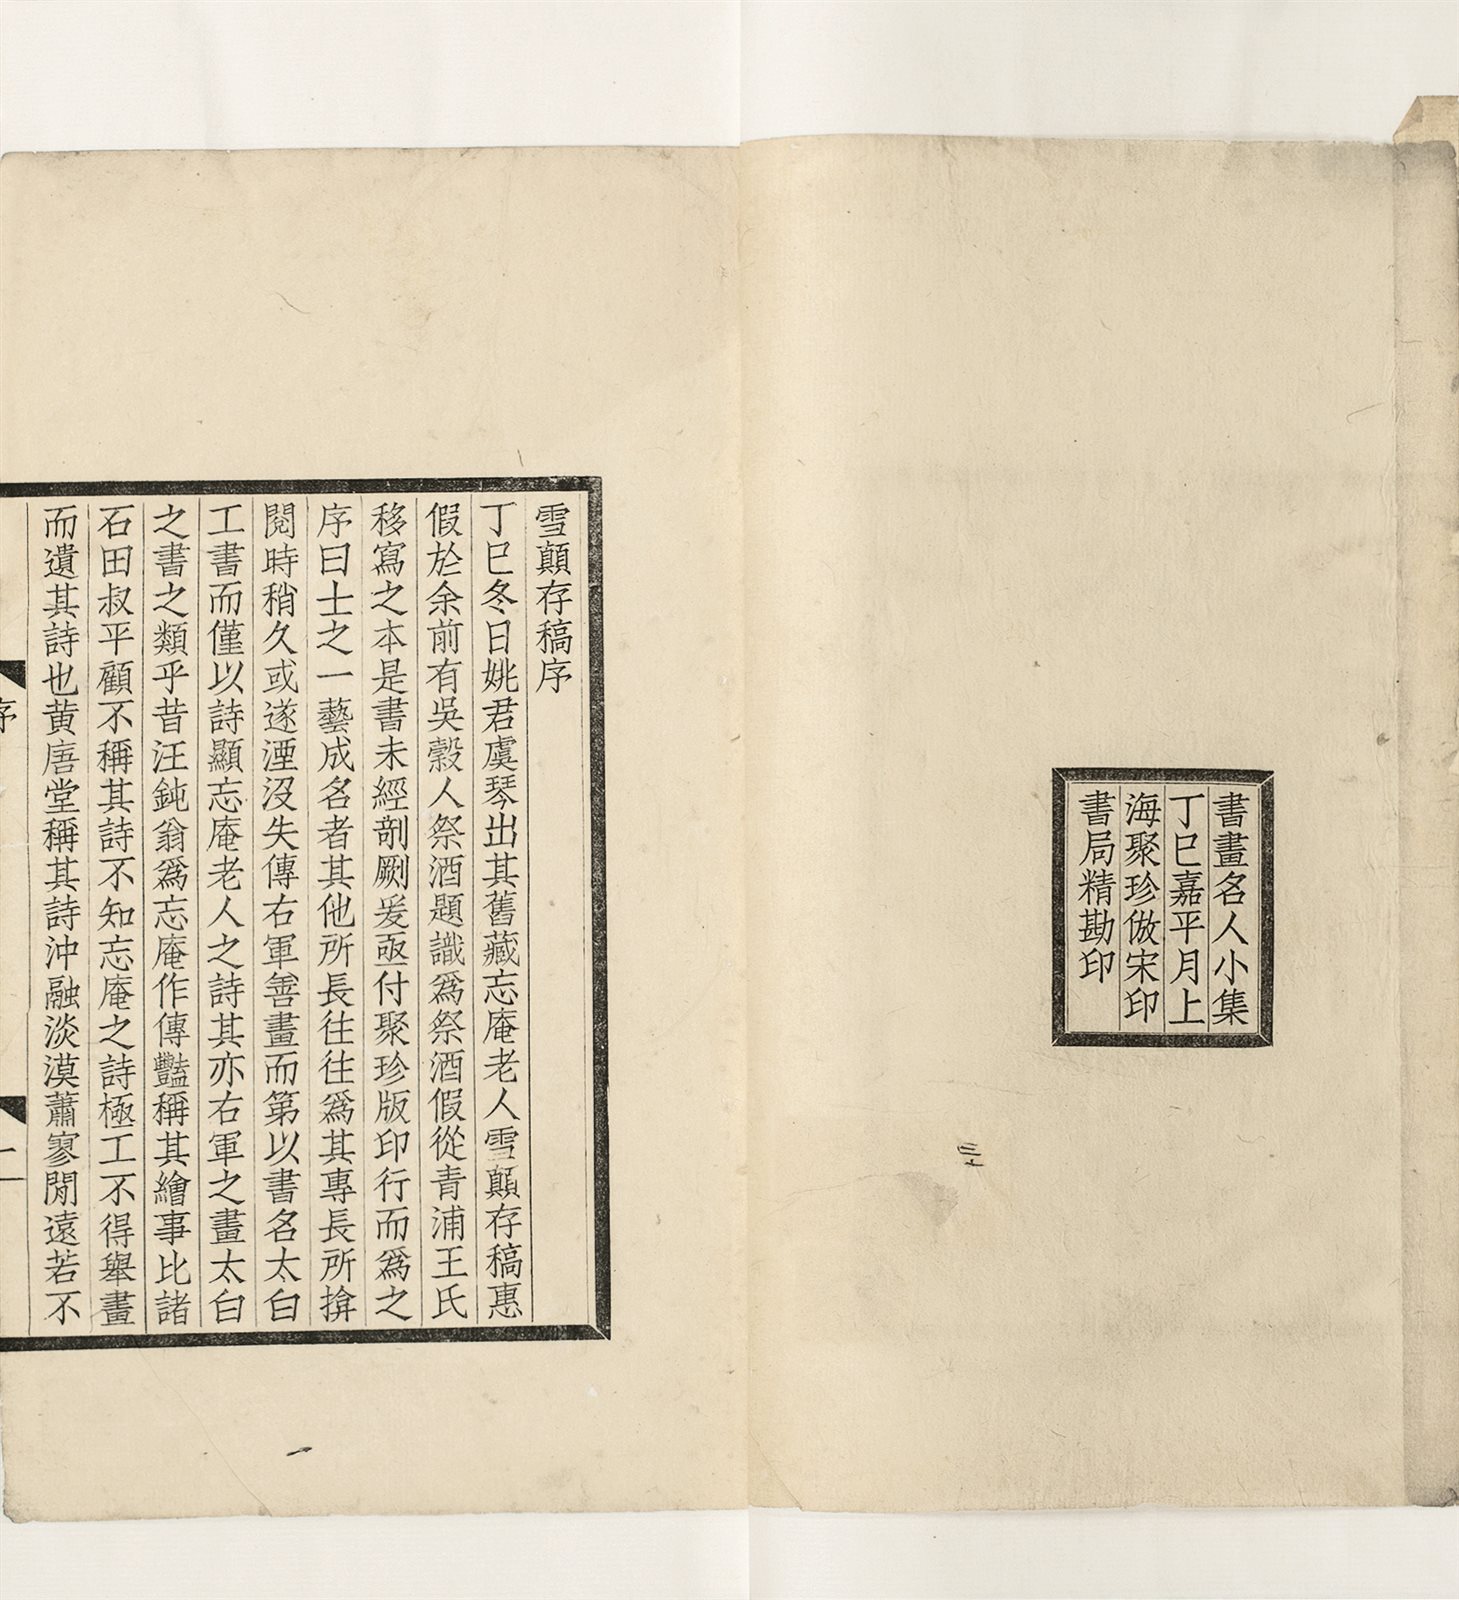 書畫名人小集
丁巳嘉平月上
海聚珍倣宋印
書局精勘印
雪顛存稿序
丁巳冬日姚君虞琴出其舊藏忘庵老人雪顛存稿惠
假於余前有吳穀人祭酒題識爲祭酒假從青浦王氏
移寫之本是書未經剞劂爰亟付聚珍版印行而爲之
序曰士之一藝成名者其他所長往往爲其專長所揜
閱時稍久或遂湮沒失傳右軍善畫而第以書名太白
工書而僅以詩顯忘庵老人之詩其亦右軍之畫太白
之書之類乎昔汪鈍翁爲忘庵作傳豔稱其繪事比諸
石田叔平顧不稱其詩不知忘庵之詩極工不得舉畫
而遺其詩也黃唐堂稱其詩沖融淡漠蕭寥閒遠若不
序